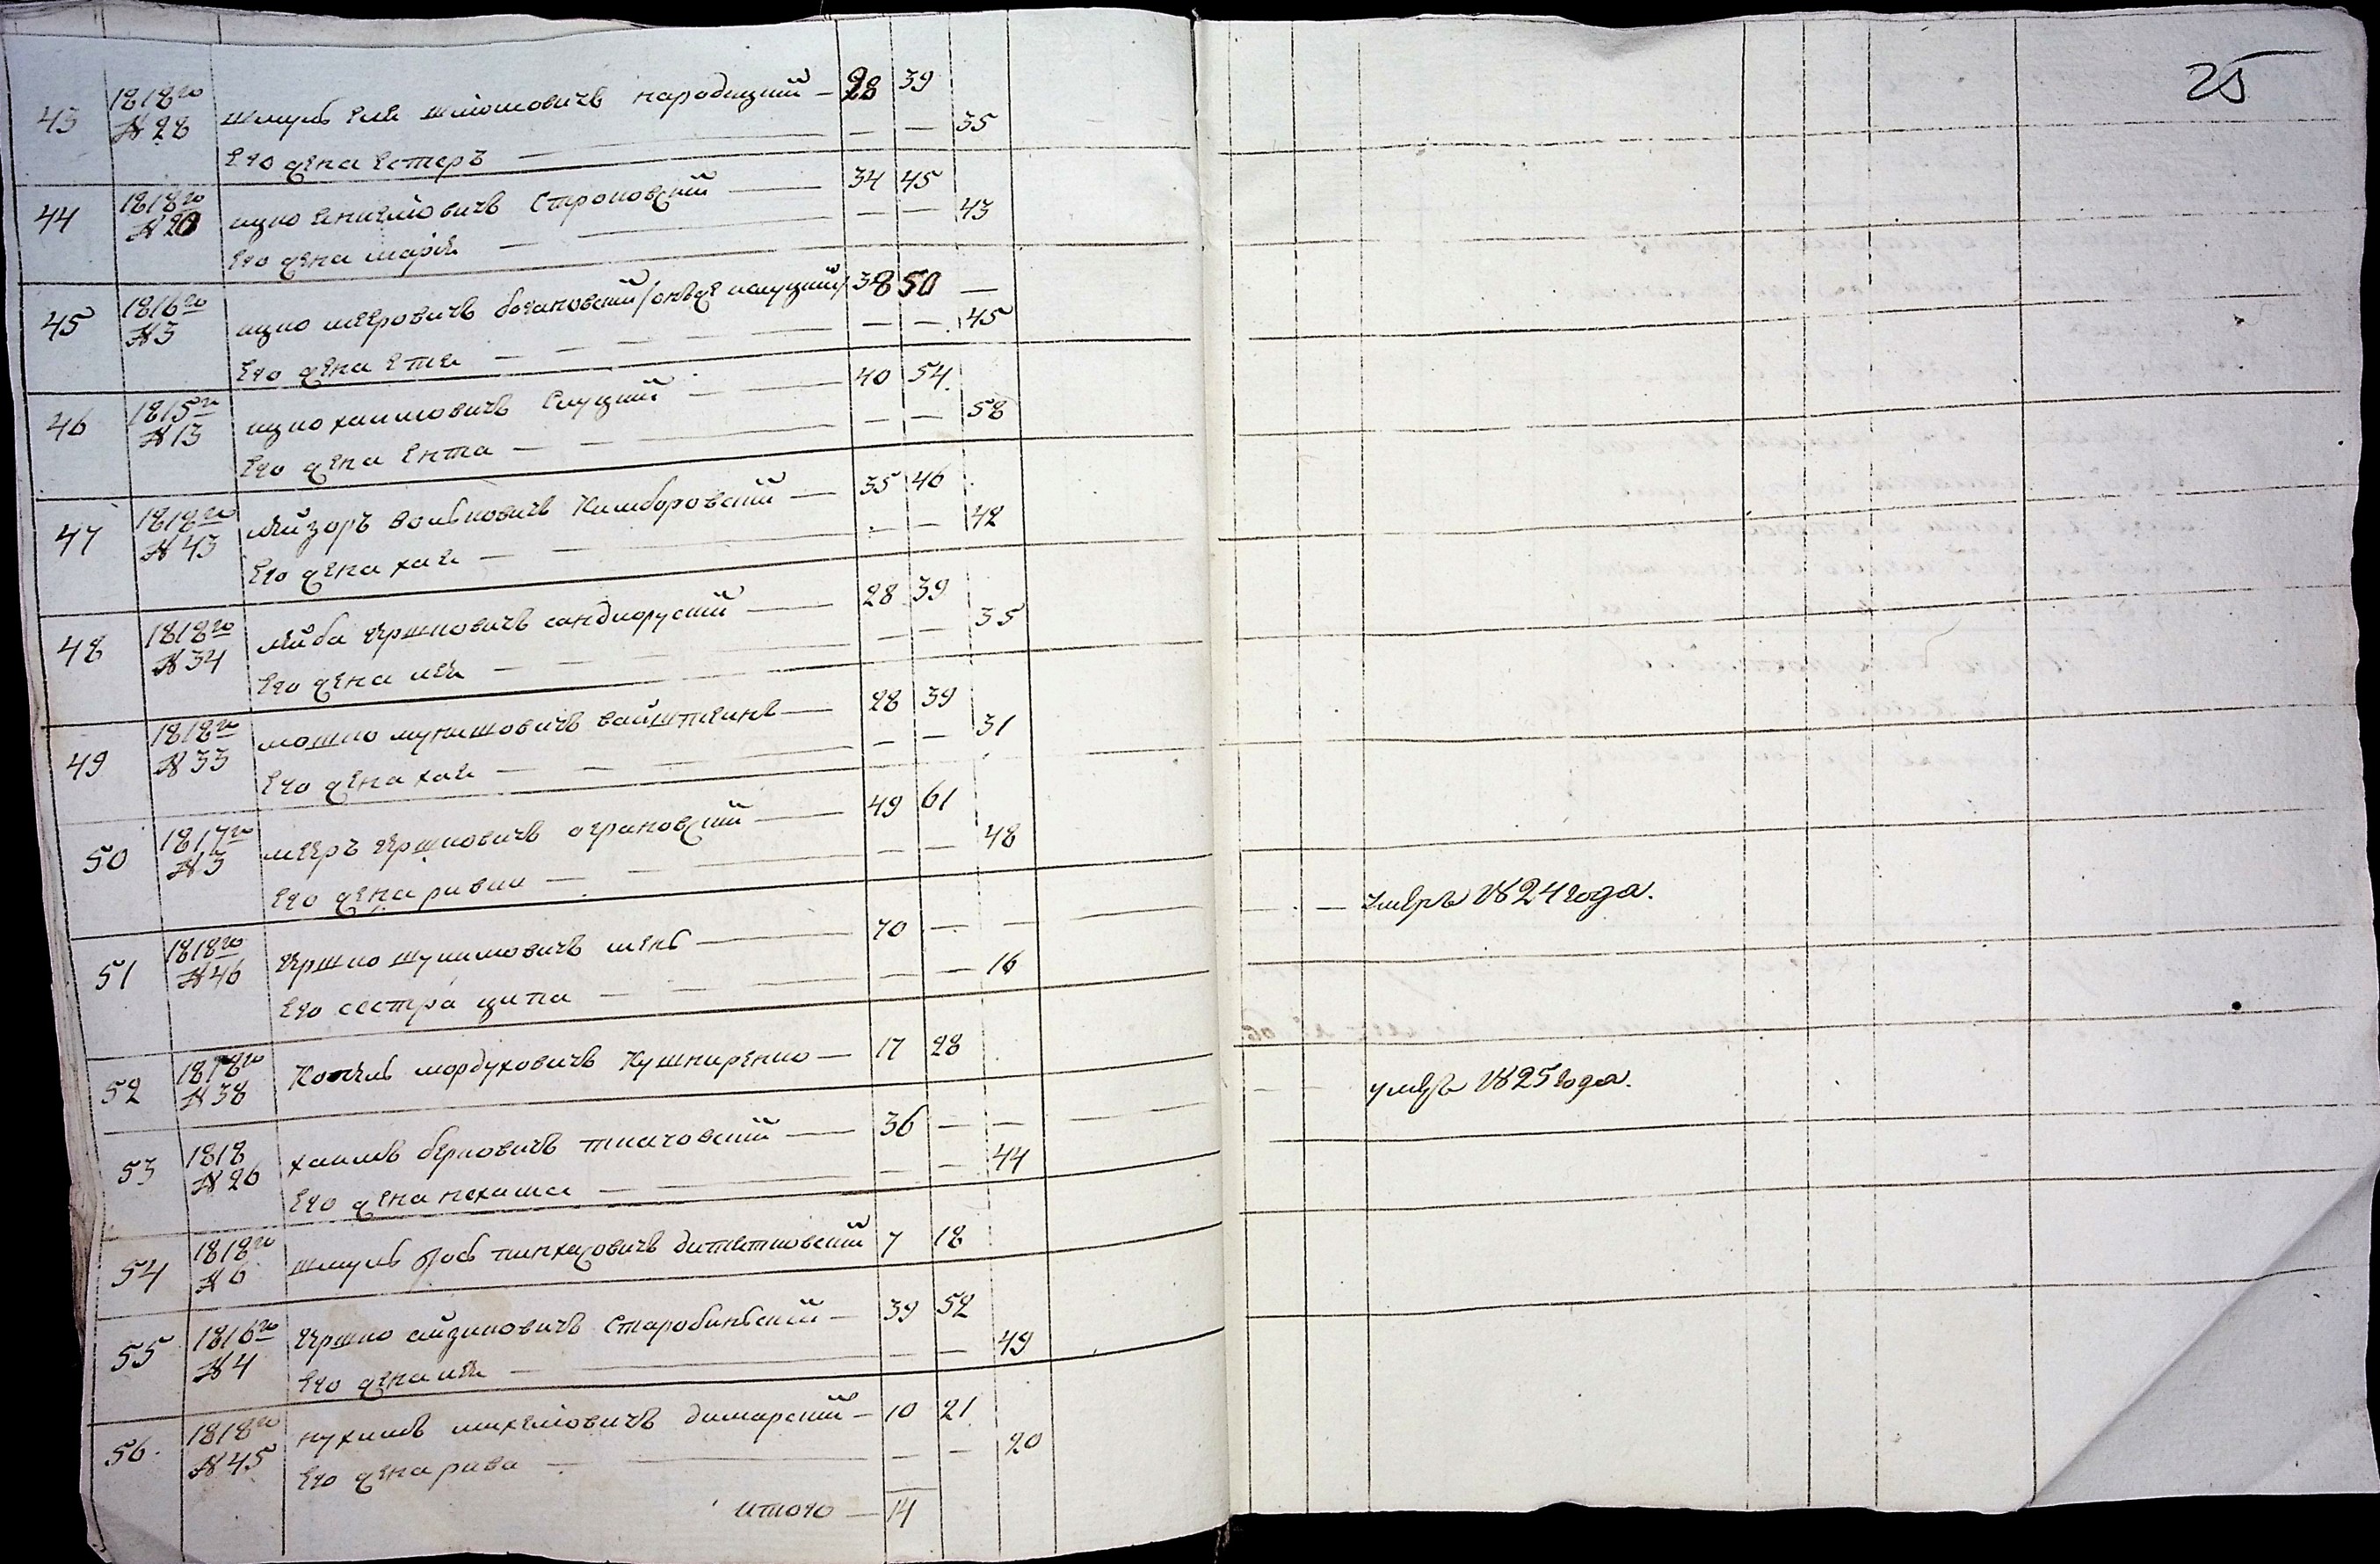 25
43 1818го № 28 Шмуль Еля Шліомовичъ народицкий — 28 39
Его жена Естеръ — — — 35
44 1818го № 20 ицко Строповский — 34 45
Его жена марія — — — 43
45 1816го № 3 ицко меяровичъ богановский /онъже слуцкий/ 38 50 —
Его жена етля — — — 45
46 1815го № 13 ицко хаимовичъ Слуцкий — 40 54
Его жена Ента — — — 58
47 1818го № 43 лейзоръ волковичъ Кимборовский — 35 46
Его жена хая — — — 42
48 1818го № 34 лейба гершковичъ сандморуский — 28 39
Его жена лея — — — 35
49 1818го № 33 мошко мунишовичъ вайштеинъ — 28 39
Его жена хая — — — 31
50 1817го № 3 меяръ гершковичъ ограновский — 49 61
Его жена ривка — — — 48
51 1818го № 46 гершко шулимовичъ шенъ — 70 — — — — умеръ 1824 года.
Его сестра ципа — — — 16
52 1818го № 38 Копель мордуховичъ Кушниренко — 17 28
53 1818 № 26 хаимъ берковичъ ткачовский — 36 — — — — умеръ 1825 года.
Его жена нехама — — — 44
54 1818го № 6 шмуль Іось пинхасовичъ дитятковский 7 18
55 1816го № 4 гершко айзиковичъ Старобинский — 39 52
Его жена лея — — — 49
56. 1818го № 45 нухимъ михелiовичъ димарский — 10 21
Его жена рива — — — 20
итого — 14